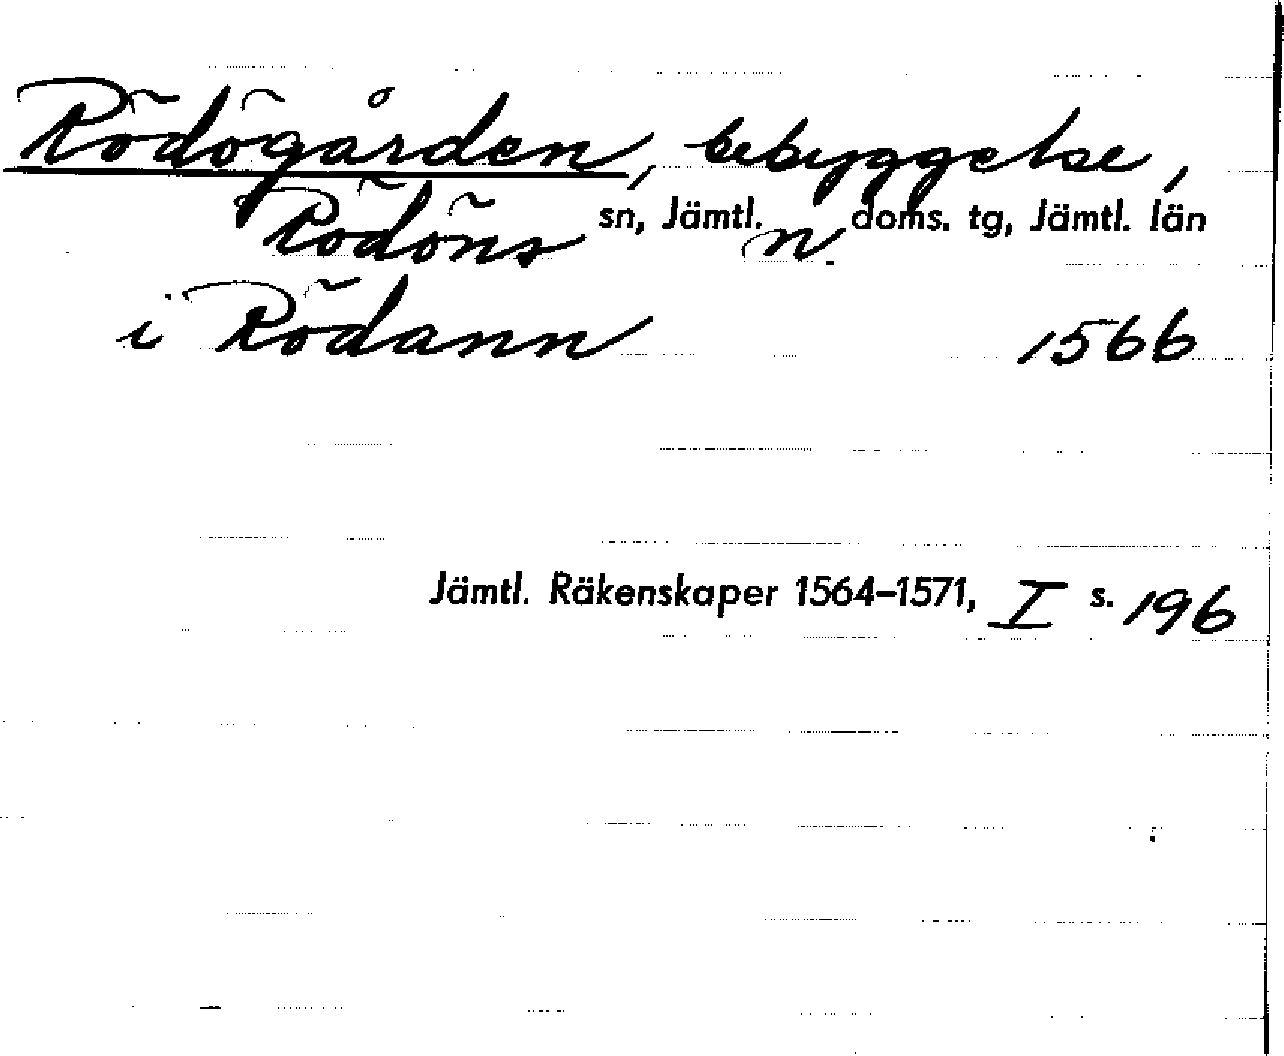 Rödögården, bebyggelse,
Rödöns sn, Jämtl. n. doms. tg, Jämtl. län
i Rödann 1566
Jämtl. Räkenskaper 1564–1571, I s. 196